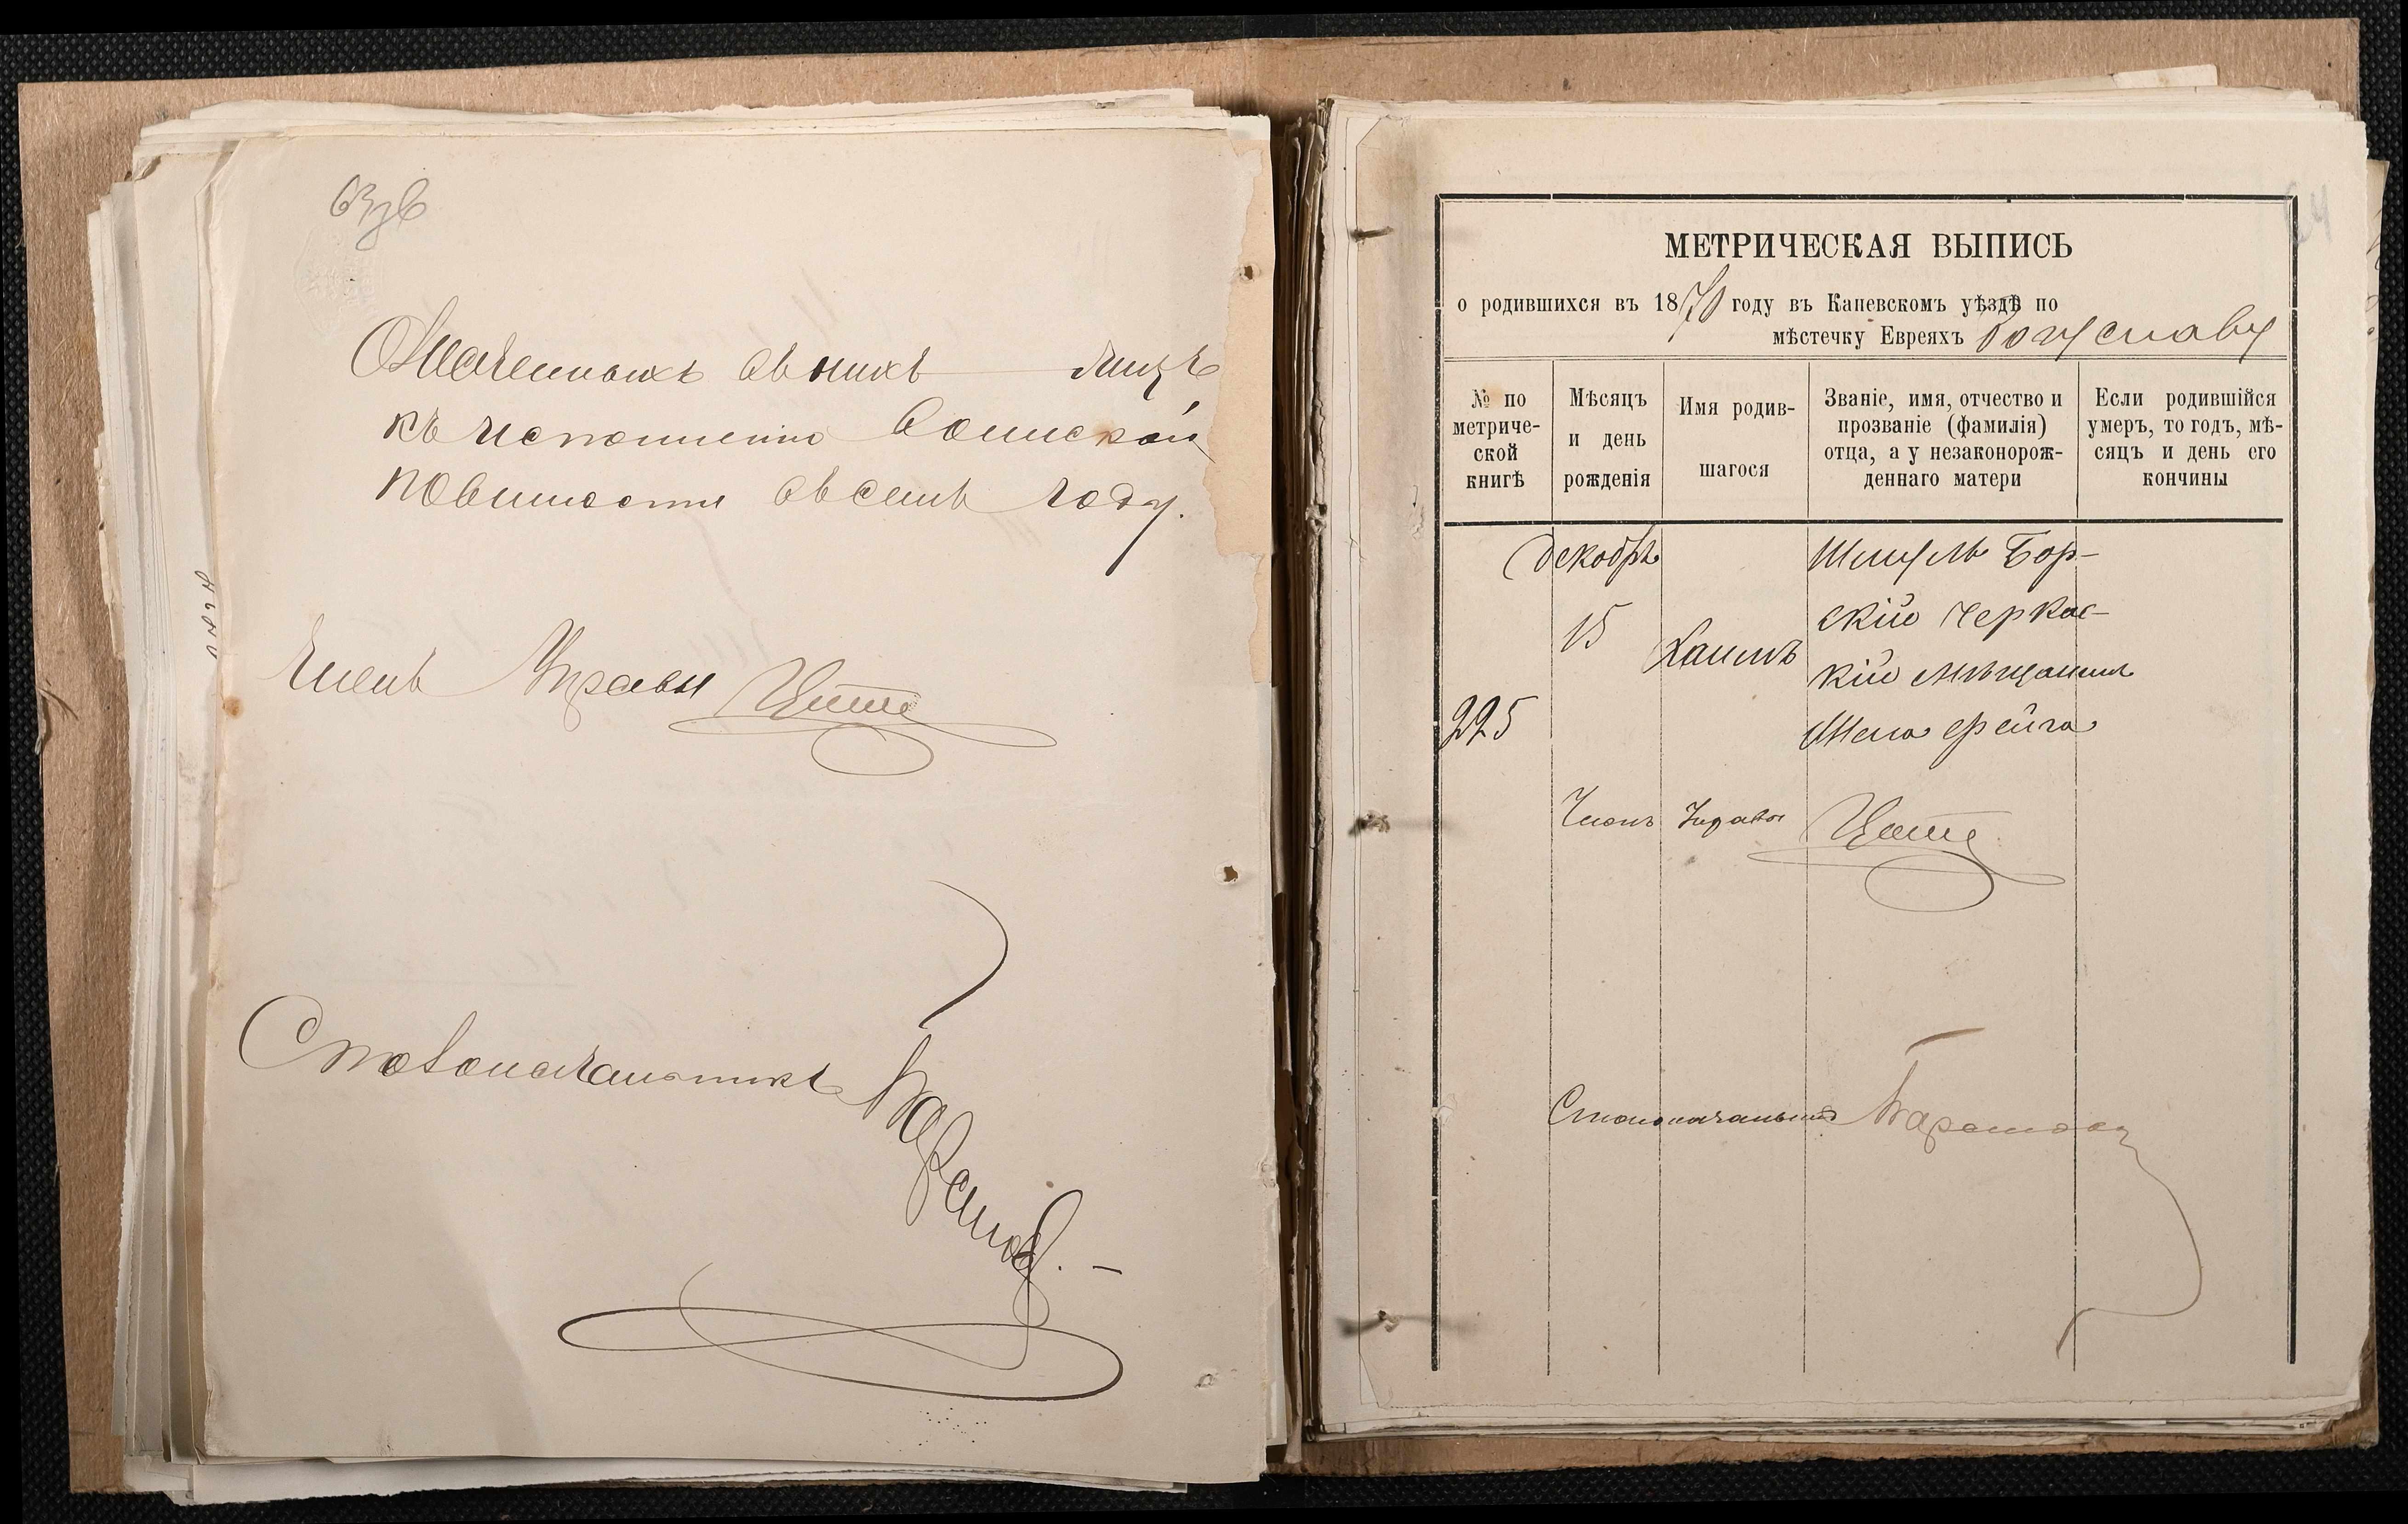 63 об
Означенныхъ въ нихъ лицъ
къ исполненію воинской
повинности въ семъ году.
Членъ Управы
Столоначальникъ
МЕТРИЧЕСКАЯ ВЫПИСЬ
о родившихся въ 1870 году въ Каневскомъ уѣздѣ по
мѣстечку Евреяхъ Богуславу
№ по метриче-ской книгѣ
Мѣсяцъ и день рожденія
Имя родив-шагося
Званіе, имя, отчество и прозваніе (фамилія) отца, а у незаконорож-деннаго матери
Если родившійся умеръ, то годъ, мѣ-сяцъ и день его кончины
Декабрь
15
225
Хаимъ
Шмуль Бор-
скій Черкас-
кій мѣщанинъ
Жена Фейга
Членъ Управы
Столоначальникъ